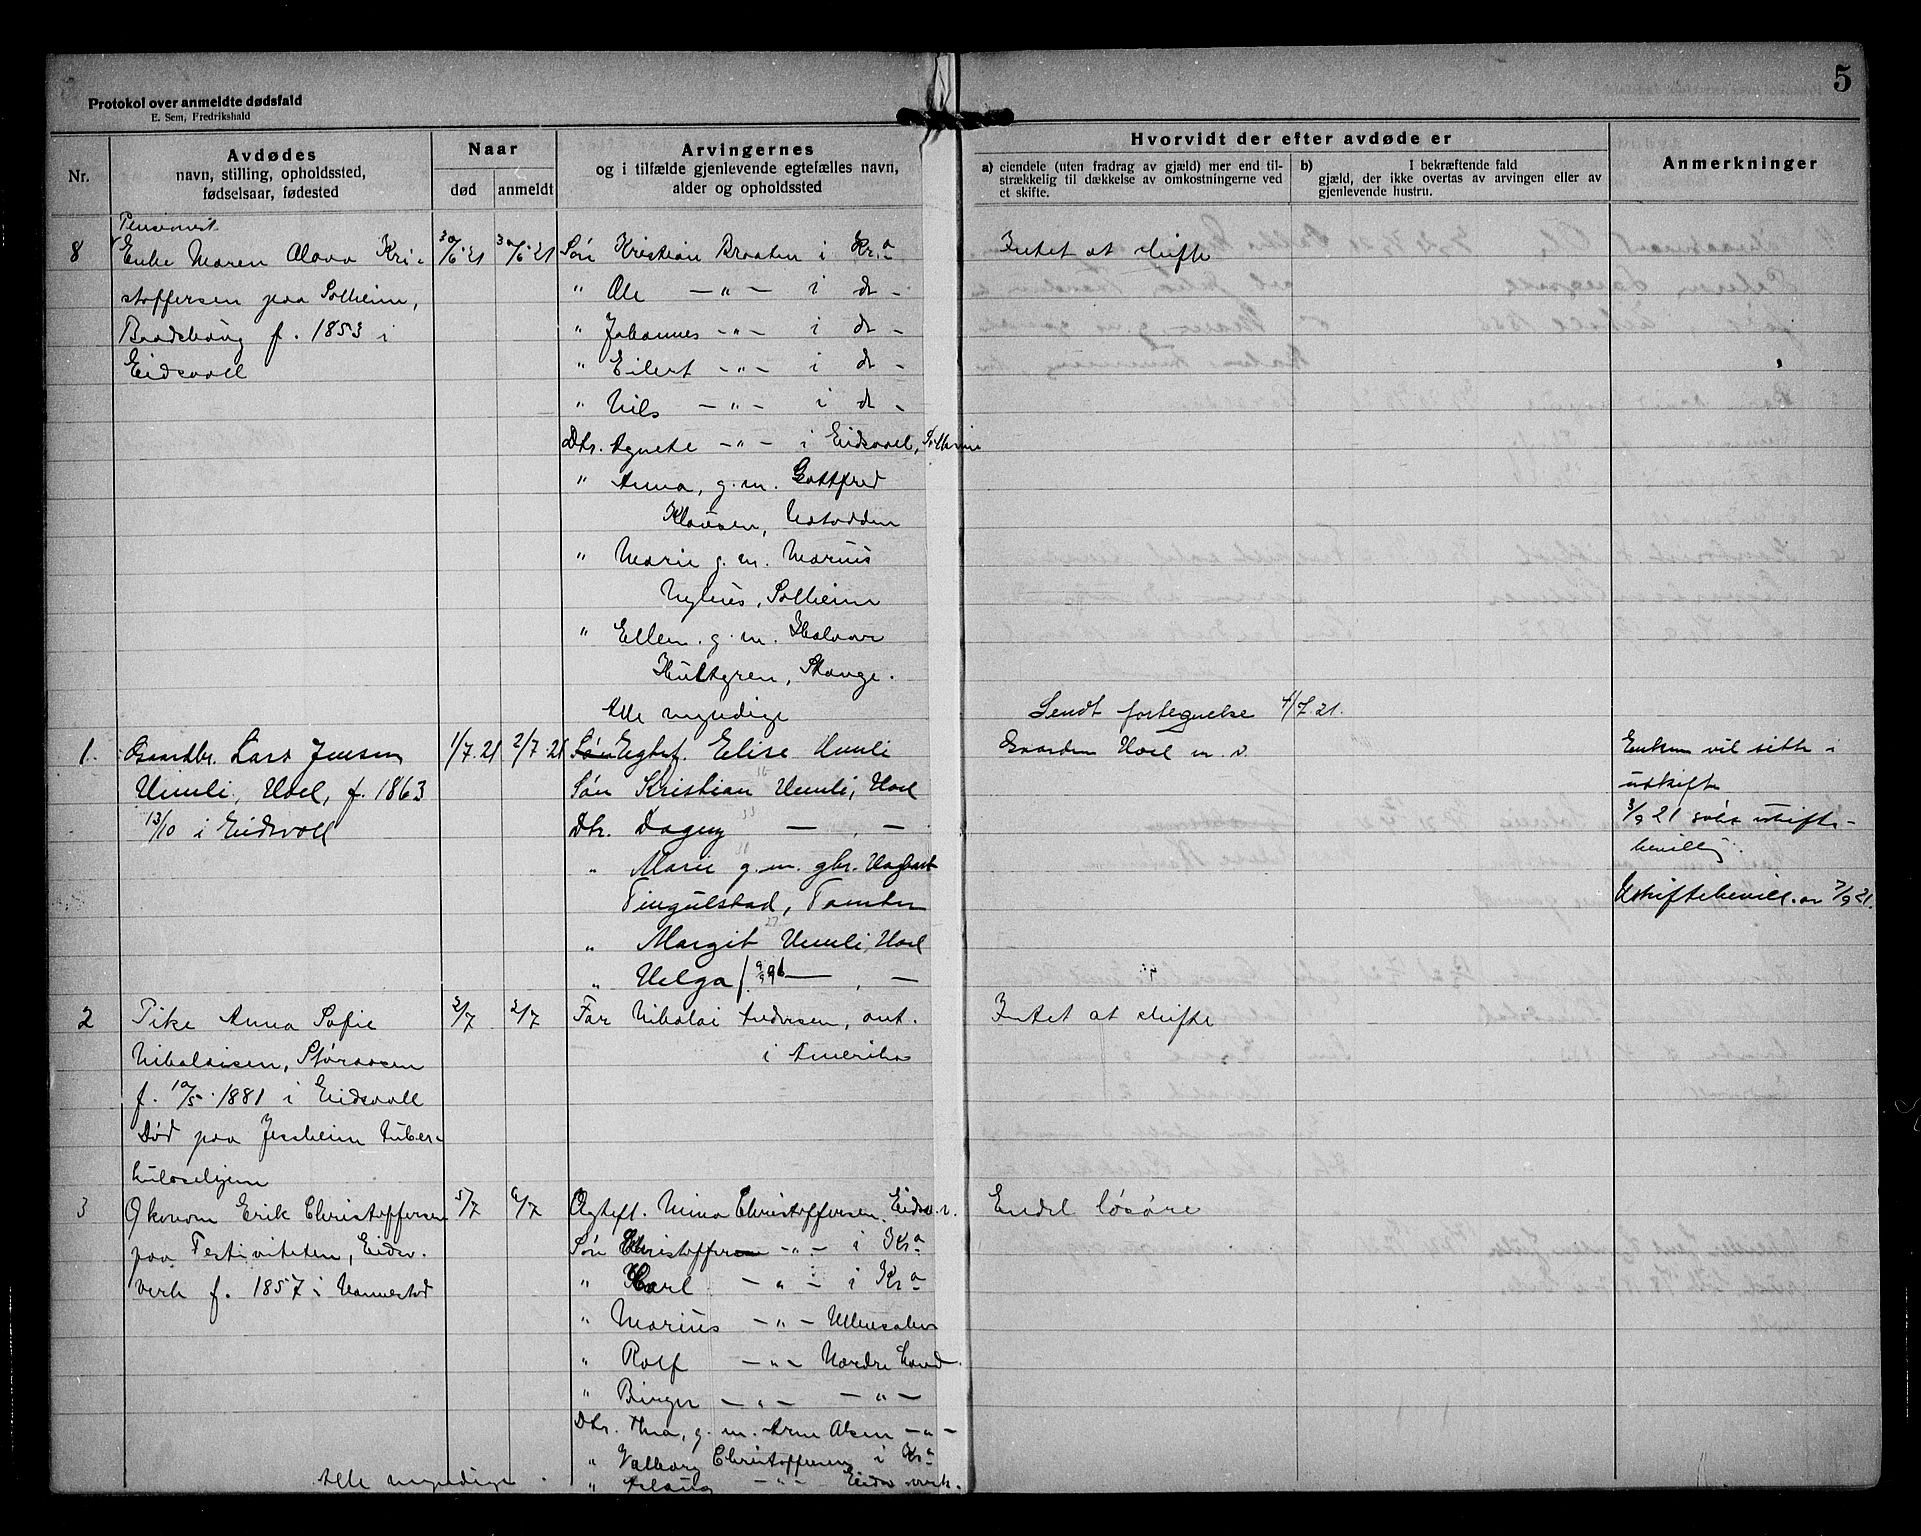 5
Protokol over anmeldte dødsfald
E. Sem, Fredrikshald
Nr.
Avdødes
navn, stilling, opholdssted,
fødselsaar, fødested
Naar
død
anmeldt
Arvingernes
og i tilfælde gjenlevende egtefælles navn,
alder og opholdssted
Hvorvidt der efter avdøde er
a) eiendele (uten fradrag av gjæld) mer end til-
strækkelig til dækkelse av omkostningerne ved
et skifte.
b) I bekræftende fald
gjæld, der ikke overtas av arvingen eller av
gjenlevende hustru.
Anmerkninger
Pensionist
8 Enke Maren Olava Kri-
stoffersen paa Solheim,
f. 1853 i
Eidsvoll
30/6 21 30/6 21
Søn Kristian Braaten i Kr.a
" Ole — " — i do -
" Johannes - " - i do -
" Eilert - " - i do -
" Nils - " - i do -
Dtr. Agnete - " - i Eidsvoll, Solheim
" Anna, g. m. Gottfred
Klausen, Notodden
" Marie g. m. Marius
Nylius, Solheim
" Ellen g. m. Halvor
Hultgren, Stange.
Alle myndige
Intet at skifte
Sendt fortegnelse 4/7 21.
1. Gaardbr. Lars Jensen
Humli, Hoel, f. 1863
13/10 i Eidsvoll
1/7 21 2/7 21
Søn Egtef. Elise Humli
Søn Kristian Humli, Hoel
Dtr. Dagny — " —
" Marie g. m. gbr. Hagbart
Tingulstad,
" Margit Humli, Hoel
" Helga f. 9/9 96 — " —
Gaarden Hoel m. v.
Enken vil sitte i
uskifte
3/9 21 søkt uskifte-
bevillg.
Uskiftebevill. av 7/9 21.
2 Pike Anna Sofie
Nikolaisen, Støraasen
f. 10/5 1881 i Eidsvoll
Død paa Jessheim tuber-
kulosehjem
2/7 2/7
Far Nikolai Andersen, ant.
i Amerika
Intet at skifte
3 Økonom Erik Christoffersen
paa Festiviteten, Eidsv.
verk f. 1857 i Nannestad
5/7 6/7
Ægtef. Mina Christoffersen, Eidsv. v.
Søn Christoffer - " - i Kr.a
" Karl - " - i Kr.a
" Marius - " - Ullensaker
" Rolf - " - Nordre Land.
" Birger - " - - " -
Dtr. Thea, g. m. Arne Olsen - " -
" Valborg Christoffersen i Kr.a
" Aslaug - " - Eidsv. verk.
Alle myndige
Endel løsøre